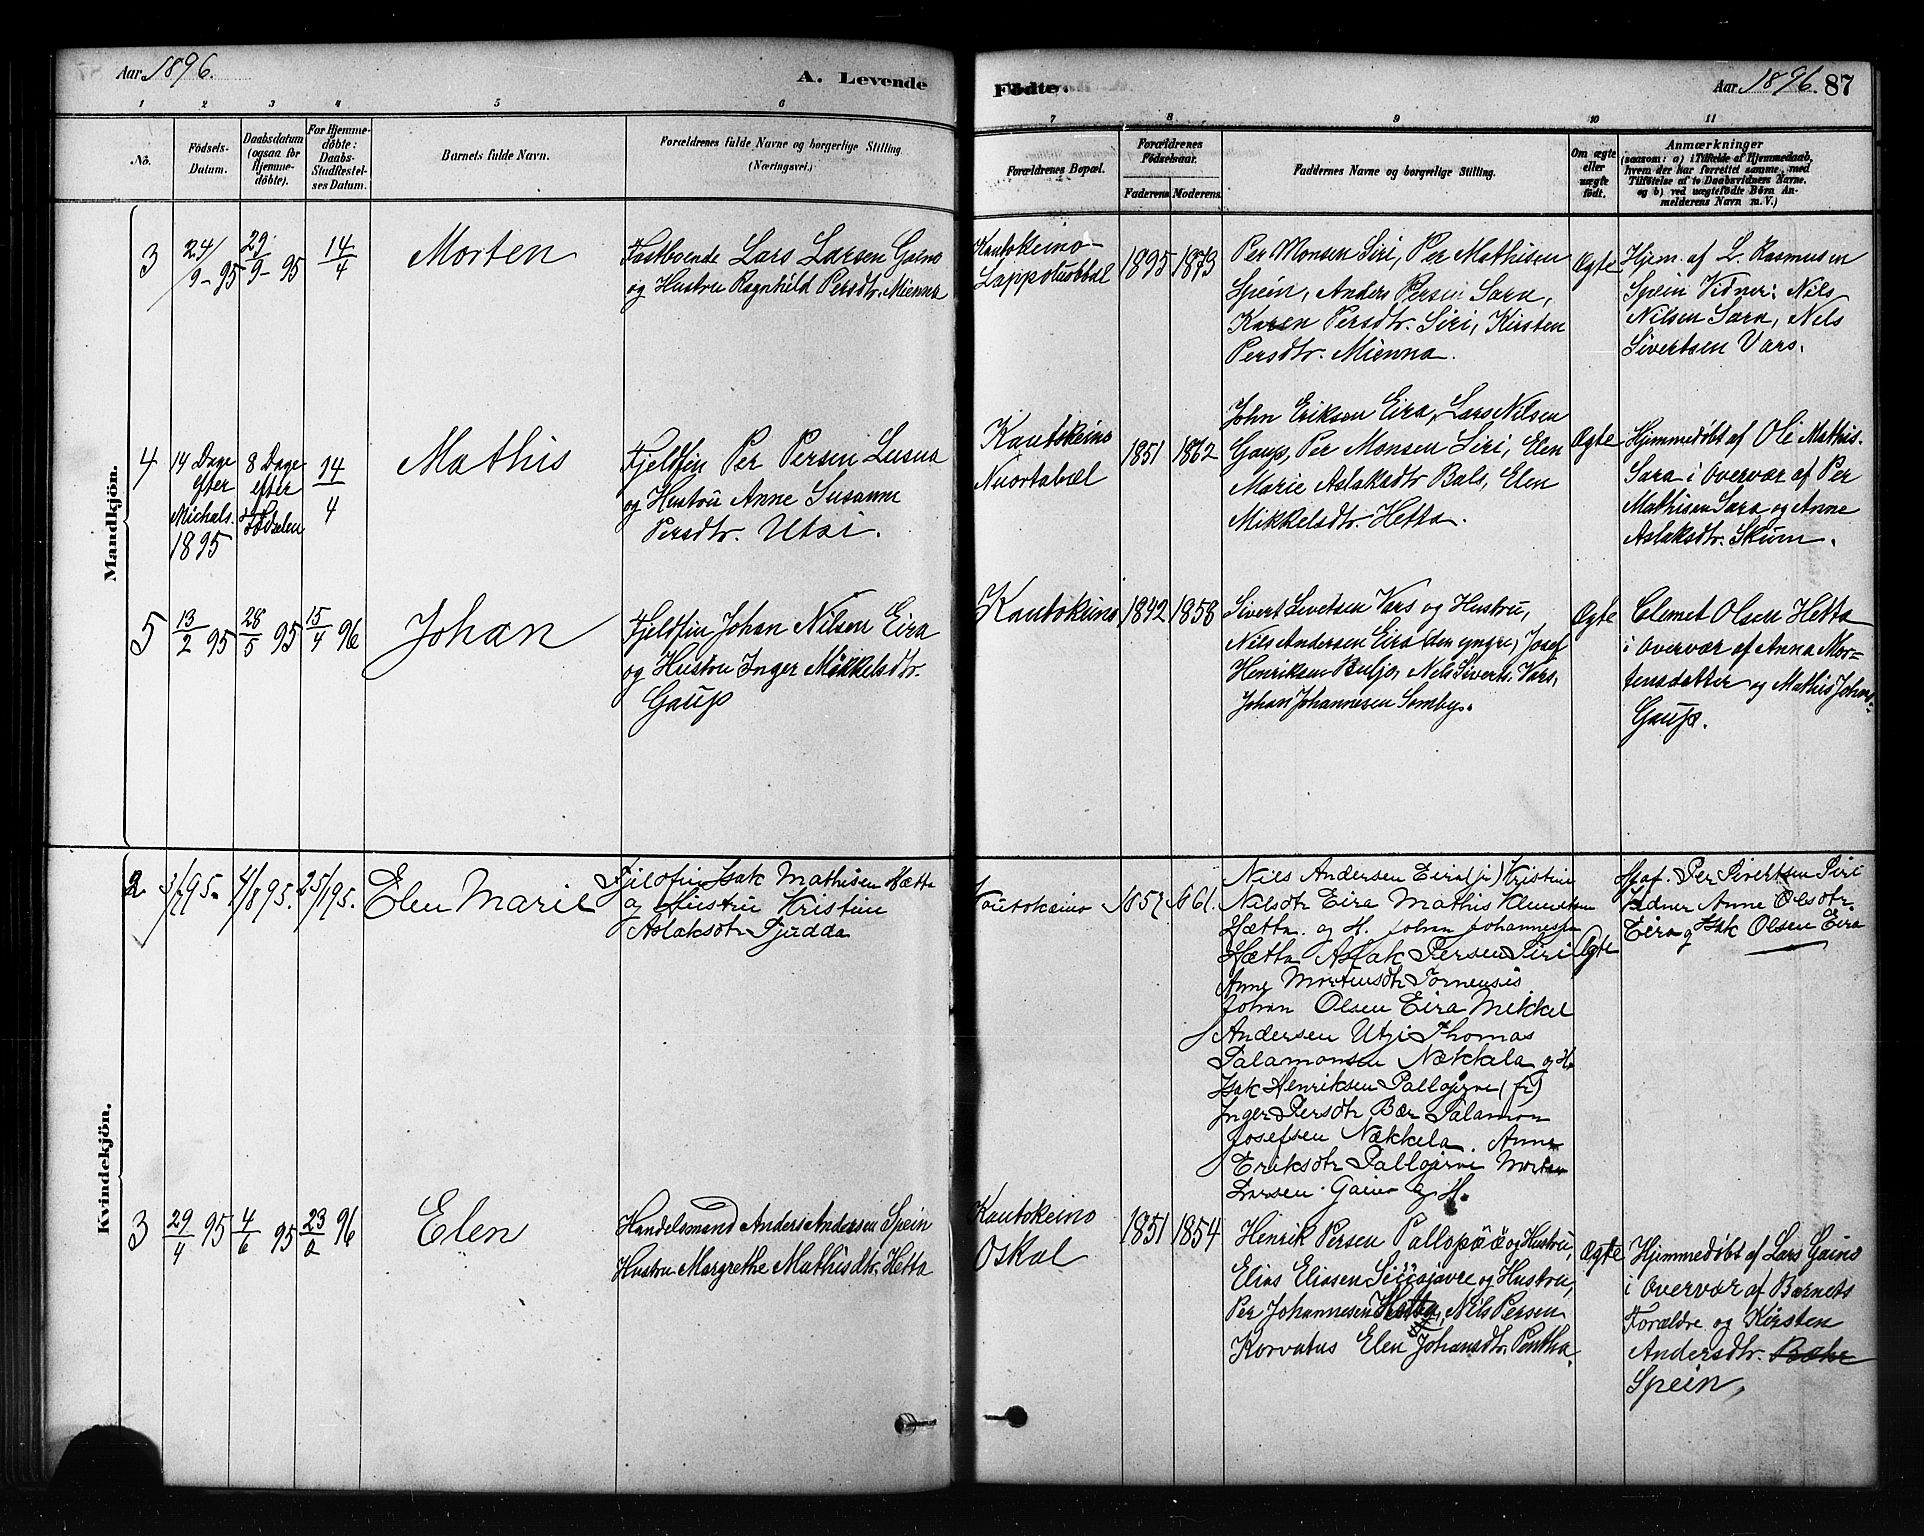 Aar 1896.
A. Levende
1 2 3 4 5 6
No.
Fødsels-
Datum.
Daabsdatum
(ogsaa for
Hjemme-
døbte).
For Hjemme-
døbte:
Daabs-
Stadfæstel-
ses Datum.
Barnets fulde Navn.
Forældrenes fulde Navne og borgerlige Stilling
(Næringsvei.)
Mandkjön.
3 24/9-95 29/9-95 14/4 Morten
Fastboende Lars Larsen Gaino
og Hustru Ragnhild Persdtr. Mienna
4 14 Dage
efter
Michals.
1895
8 Dage
efter
Fødselen
14/4
Mathis
Fjeldfin Per Persen Lusua
og Hustru Anne Susanne
Persdtr. Utsi.
5 13/2 95 28/5 95 15/4 96 Johan
Fjeldfin Johan Nilsen Eira
og Hustru Inger Mikkelsdtr.
Gaup
Kvindekjön.
2 3/7 95. 4/8 95. 25/1 95. Elen Marie
Fjeldfin Isak Mathisen Hætta
og Hustru Kristine
Aslaksdtr Tjudda
3 29/4 95 4/6 95 23/2 96 Elen
Handelsmand Anders Andersen Spein
Hustru Margrethe Mathisdtr. Hetta
Fødte.
Aar 1896. 87
7 8 9 10 11
Forældrenes Bopæl.
Forældrenes
Fødselsaar.
Faderens. Moderens.
Faddernes Navne og borgerlige Stilling.
Om ægte
eller
uægte
født.
Anmærkninger
(saasom: a) i Tilfælde af Hjemmedaab,
hvem der har forrettet samme, med
Tilføielse af to Daabsvidners Navne.
og b) ved uægtefødte Børn An-
melderens Navn m. V.)
Kautokeino-
Lappoluobbal
1895 1873
Per Monsen Siri, Per Mathisen
Spein, Anders Persen Sara,
Karen Persdtr. Siri, Kirsten
Persdtr. Mienna.
Ægte
Hjem. af L. Rasmusen
Spein Vidner: Nils
Nilsen Sara, Nils
Sivertsen Vars.
Kautokeino
Nuortabæl
1851 1862
John Eriksen Eira, Lars Nilsen
Gaup, Per Monsen Siri, Elen
Marie Aslaksdtr Bals, Elen
Mikkelsdtr. Hetta.
Ægte
Hjemmedøbt af Ole Mathis.
Sara i Overvær af Per
Mathisen Sara og Anne
Aslaksdtr. Skum.
Kautokeino 1842 1858
Sivert Levetsen Vars og Hustru,
Nils Andersen Eira (den yngre) Josef
Henriksen Buljo, Nils Siverts. Vars,
Johan Johannesen Somby.
Ægte
Clemet Olsen Hetta
i Overvær af Anna Mor-
tensdatter og Mathis Johns.
Gaup.
Koutokeino 1857 1861.
Nils Andersen Eira (jr) Kristine
Nilsdtr Eira Mathis Klemetsen
Hætta og H. Johan Johannessen
Hætta Aslak Persen Siri
Anne Mortensdtr Tornensis
Johan Olsen Eira Mikkel
Andersen Utsi Thomas
Salamonsen Nækkala og H.
Isak Henriksen Pallojerve (jr)
Inger Persdtr Bær Salamon
Josefsen Nækkela. Anne
Eriksdtr Pallojervi Morten
Larsen Gaino og H.
Ægte
Hj. af. Per Sivertsen Siri
Vidner Anne Olsdtr.
Eira og Isak Olsen Eira
Kautokeino
Oskal
1851 1854
Henrik Persen Pallopää og Hustru,
Elias Eliasen Siiosjavre og Hustru,
Per Johannesen Hetta, Nils Persen
Korvatus Elen Johansdtr. Pentha.
Ægte
Hjemmedøbt af Lars Gaino
i Overvær af Barnets
Forældre og Kirsten
Andersdtr. Bæhr
Spein,